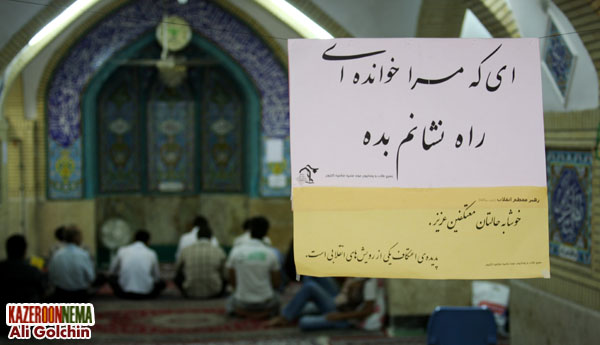 ای که مرا خوانده ای
راه نشانم بده
رهبر معظم انقلاب
خوشا به حالتان معتکفین عزیز.
پدیده‌ی اعتکاف یکی از رویش‌های انقلابی است.
KAZEROONNEMA
Ali Golchin